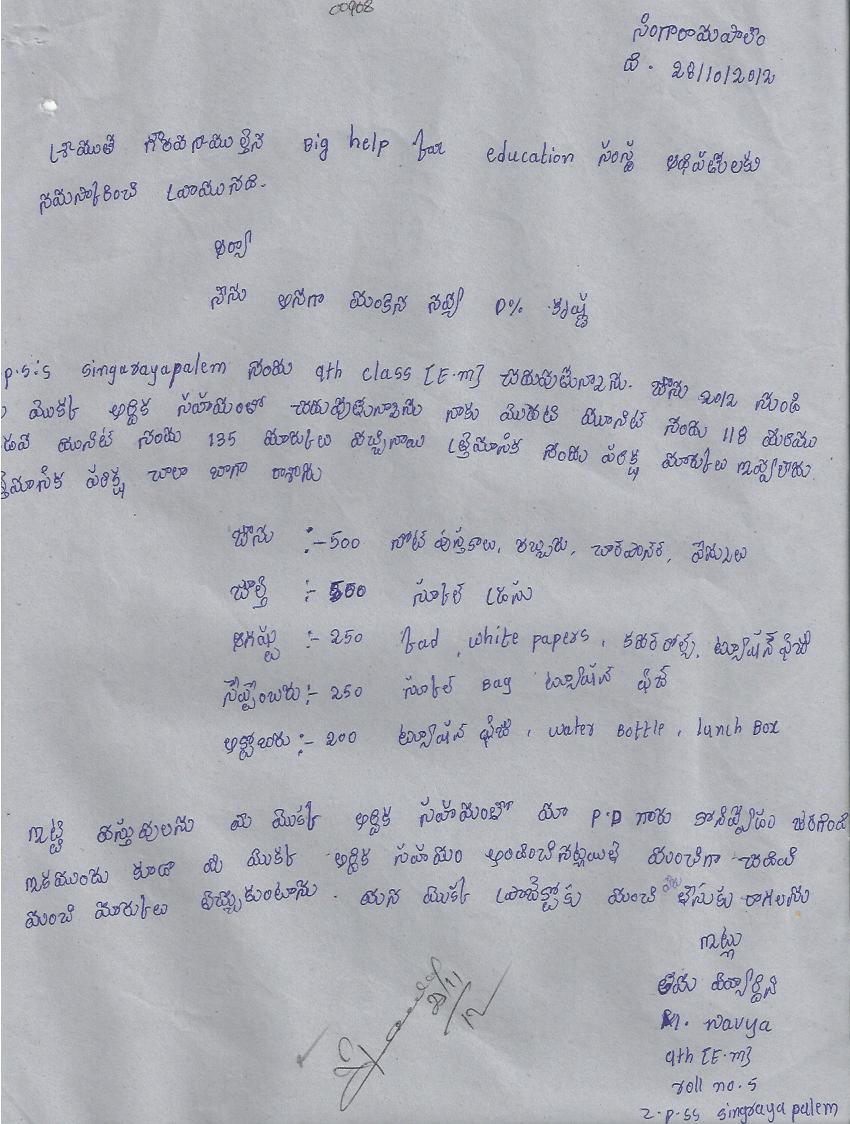 00908
సింగారాయపాలెం
ది. 28/10/2012
శ్రీయుత గౌరవనీయులైన Big help for education సంస్థ అధిపతులకు
నమస్కరించి వ్రాయునది.
ఆర్యా
నేను అనగా మంకెన నవ్య D% కృష్ణ
p.s.s singarayapalem నందు 9th class [E.m] చదువుచున్నాను. జూను 2012 నుండి
మొక్క ఆర్థిక సహాయంతో చదువుచున్నాను నాకు మొదటి యూనిట్ నందు 118 మరియు
డవ యునిట్ నందు 135 మార్కులు వచ్చినాయి త్రైమాసిక నందు పరీక్ష మార్కులు ఇవ్వలేదు.
త్రైమాసిక పరీక్ష చాలా బాగా రాశాను
జూను :- 500 నోట్ పుస్తకాలు, రబ్బరు, షార్పానర్, పెన్నులు
జూలై :- 500 స్కూల్ డ్రెసు
ఆగష్టు :- 250 Pad, white papers, కవర్ రోల్స్, ట్యూషన్ ఫీజ్
సెప్టెంబరు :- 250 స్కూల్ Bag ట్యూషన్ ఫీజ్
అక్టోబరు :- 200 ట్యూషన్ ఫీజ్, water Bottle, lunch Box
ఇట్టి వస్తువులను మీ మొక్క ఆర్థిక సహాయంతో మా P.D గారు కొనివ్వడం జరిగింది
ఇకముందు కూడా మీ మొక్క ఆర్థిక సహాయం అందించినట్లయితే మంచిగా చదివి
మంచి మార్కులు తెచ్చుకుంటాను. మన మొక్క ప్రాజెక్టుకు మంచి పేరు తీసుకు రాగలను
ఇట్లు
తమ విద్యార్థిని
M. Navya
9th [E.m]
roll no.5
Z.p.ss singraya palem
28/11/12